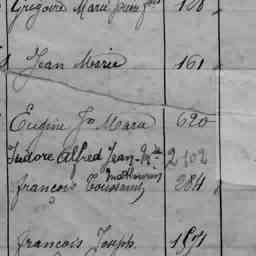 Grégoire Marie 108
Jean Marie 161
Eugène Jn Marie 620
Isidore Alfred Jean-Mie 2102
Mathurin
François Toussaint 284
François Joseph